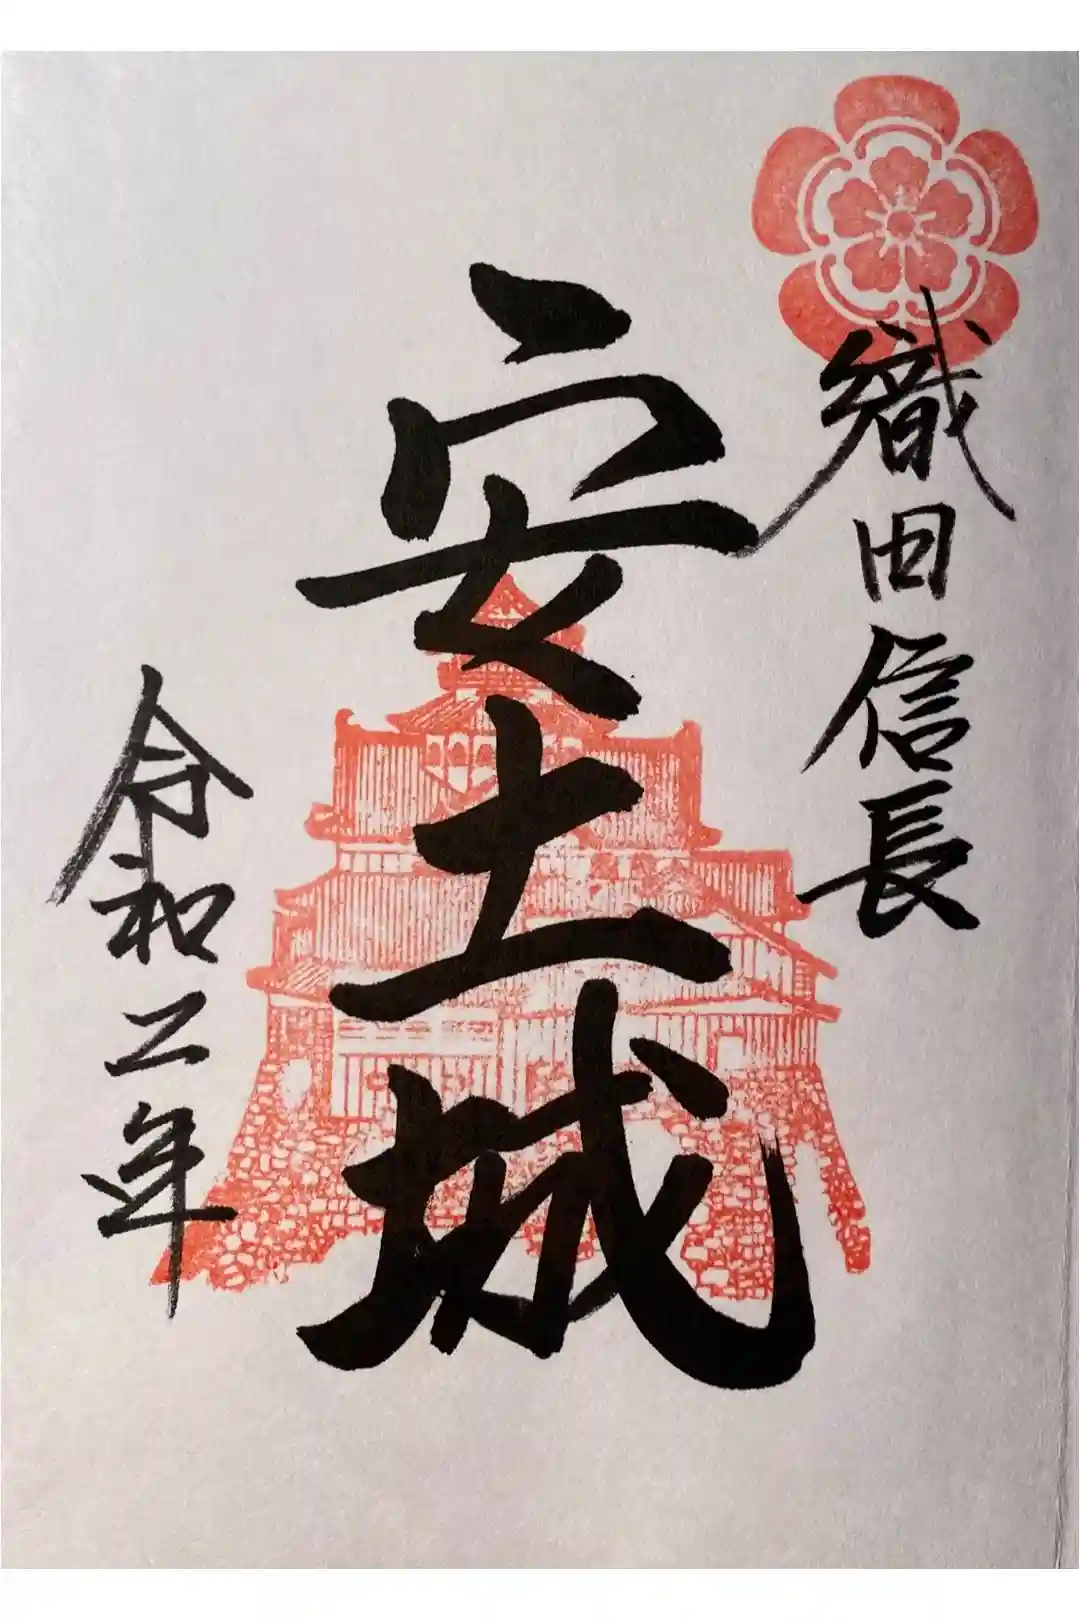 織田信長
安土城
令和二年